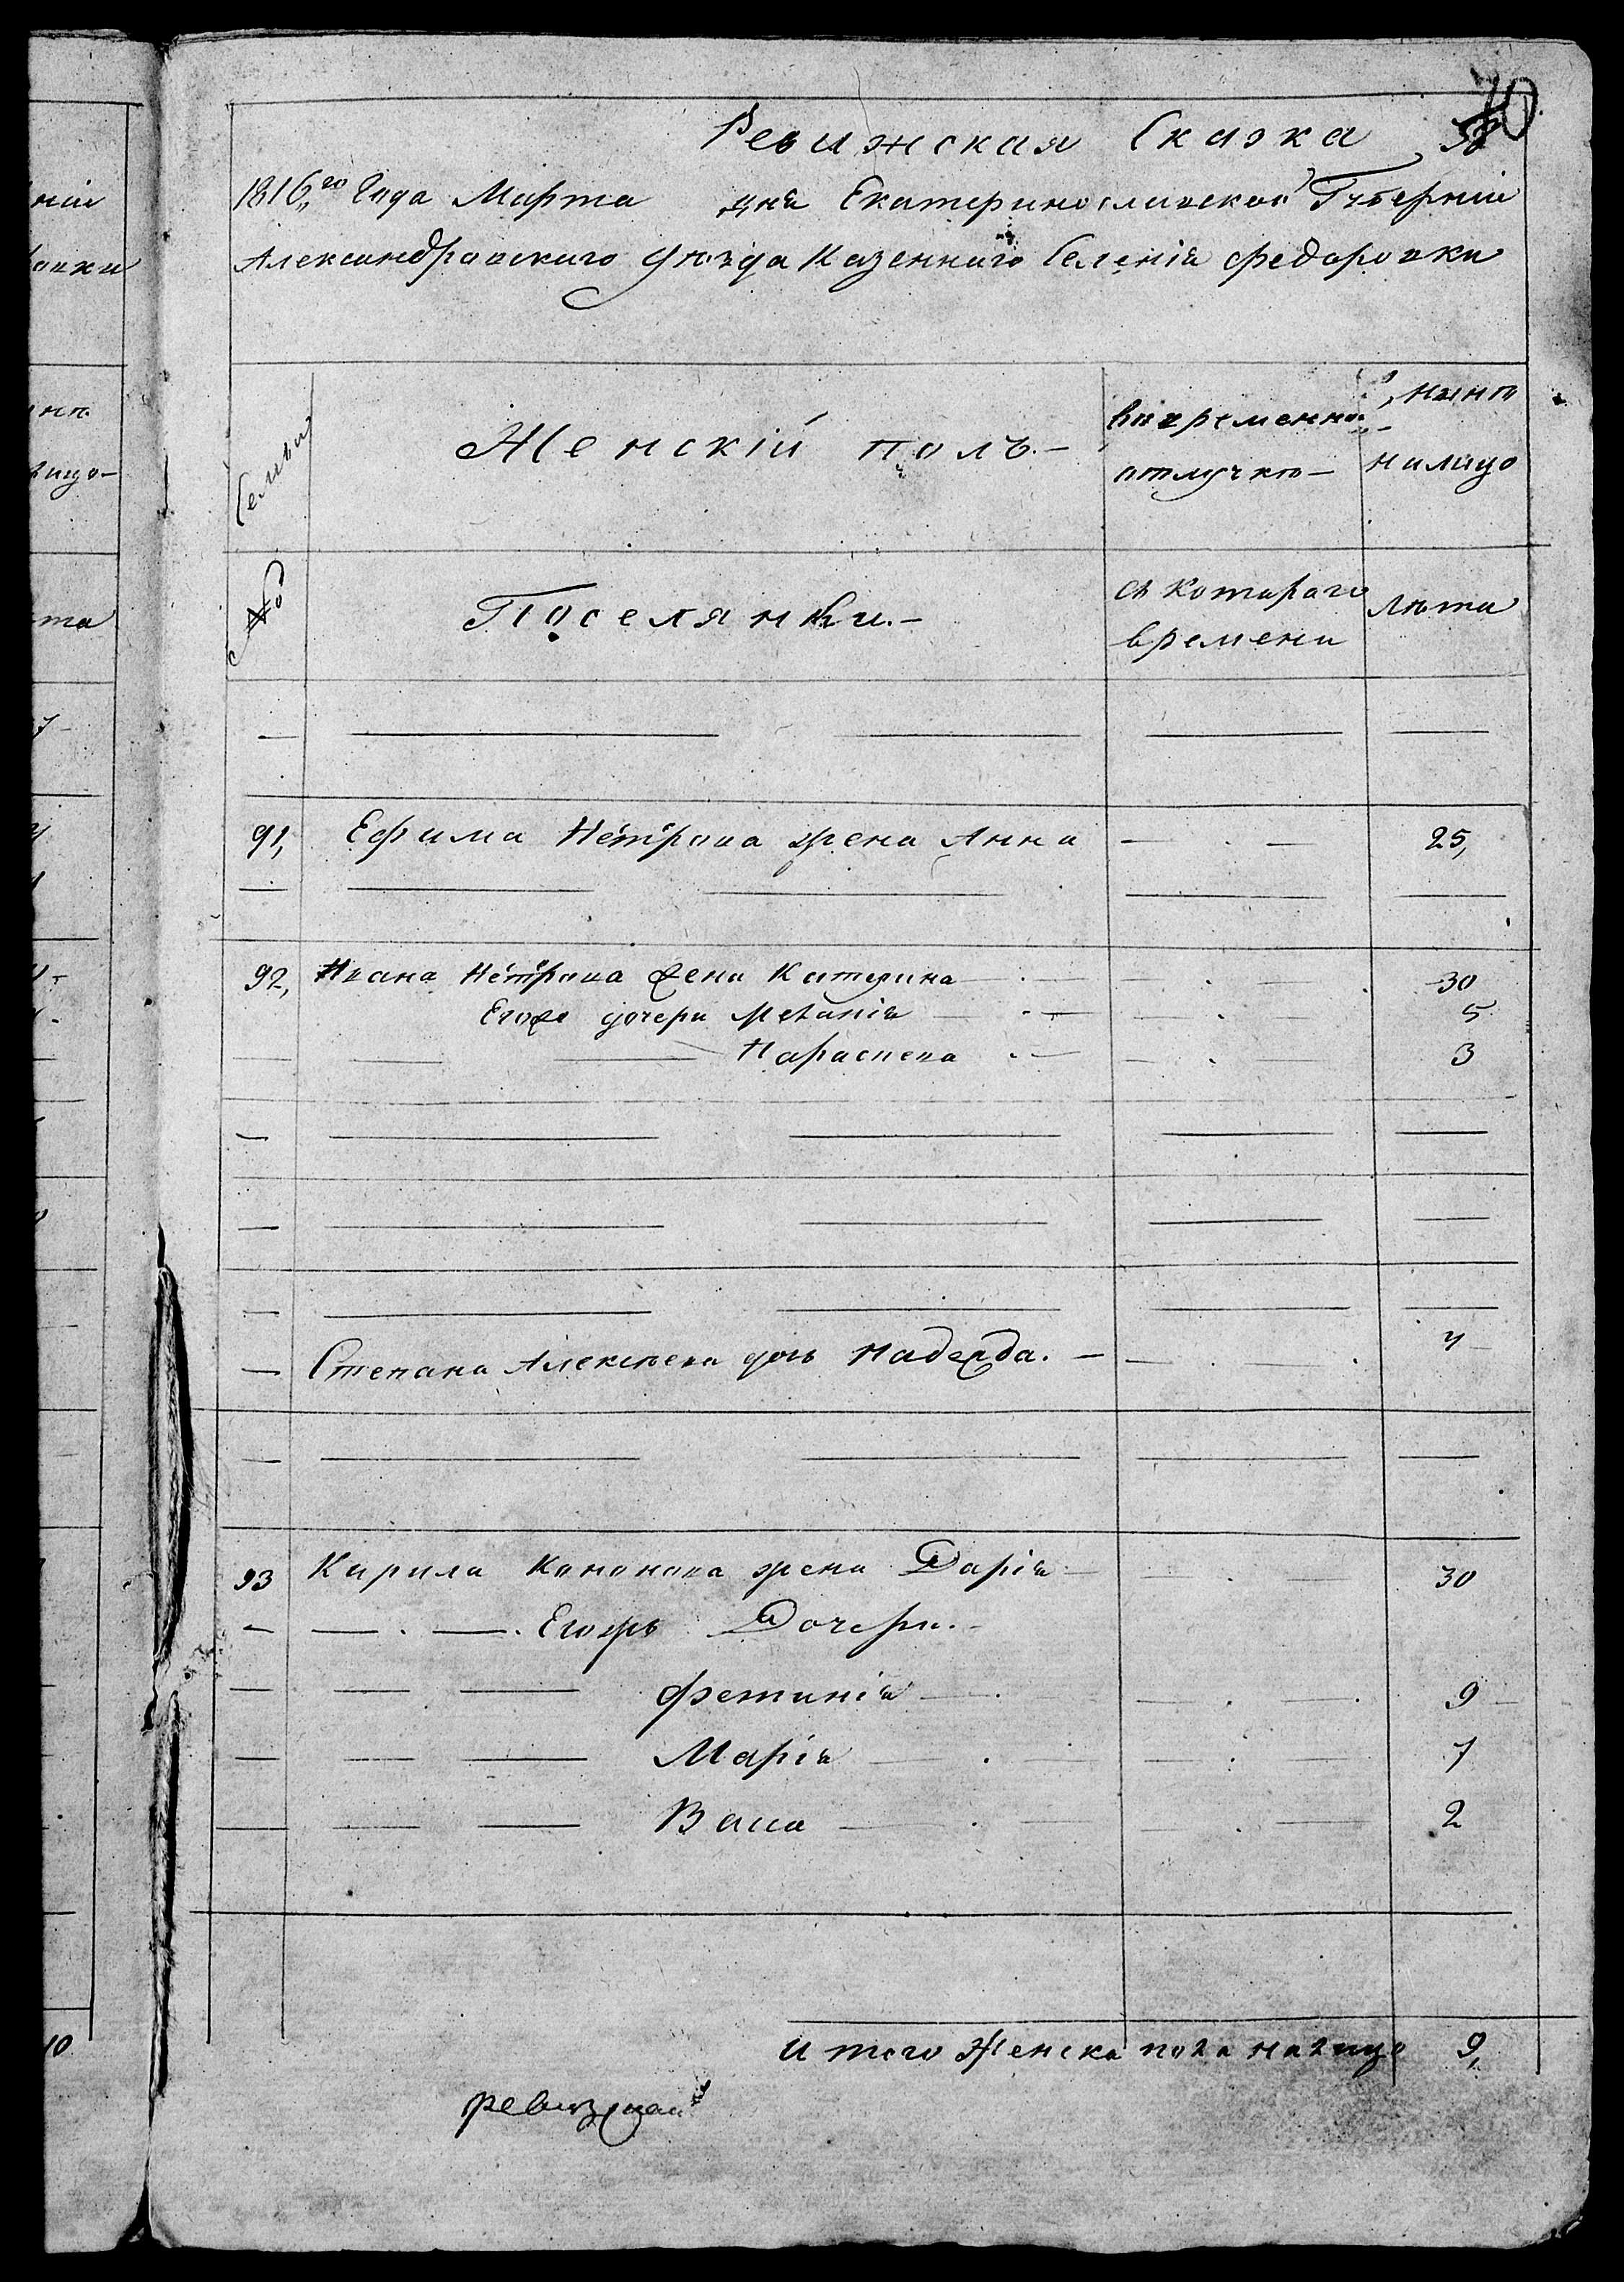 40
58
Ревижская Сказка
1816го Года Марта дня Екатеринославской Губерніи
Александровскаго уѣзда Казеннаго Селенія Федоровки
Семьи
Женскій полъ.—
во временной
отлучкѣ—
нынѣ
налицо
№
Поселянки.—
съ Котораго
времени
Лѣта
91, Ефима Петрова жена Анна — 25,
92, Ивана Петрова жена Катерина — 30
Егоже дочери Меланія — 5
Параскева — 3
Степана Алексѣева дочь Надежда. — 4
93 Кирила Кононова жена Дарія — 30
Егожъ Дочери.
Фетинія — 9
Марія — 7
Васса — 2
Итого Женска пола налицо 9,
ніи
овки
нѣ
лицо—
та
7
10